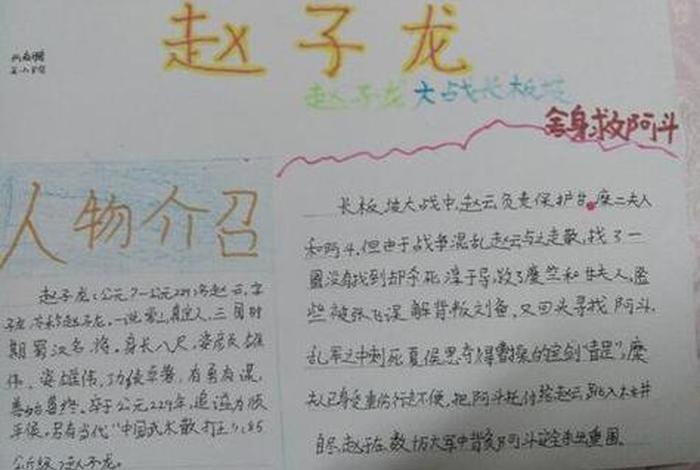 赵子龙
赵子龙大战长板坡
舍身救阿斗
人物介召
赵子龙(公元?一公元229)名赵云,字
子龙,常山真定人,三国时
期蜀汉名将。身长八尺,姿颜雄
伟、姿雄伟,功绩卓著,有勇有谋,
善始善终。卒于公元229年,追谥为顺
平侯。另有当代"中国武术散打王",85
公斤级:赵子龙。
长板坡大战中,赵云负责保护甘、糜二夫人
和阿斗,但由于战争混乱赵云与之走散,找了一
圈没有找到却杀死淳于导,救了糜竺和甘夫人,
些被张飞误解背叛刘备,又回头寻找阿斗,
乱军之中刺死夏侯恩夺得曹操的宝剑"青
夫人已身受重伤行走不便,把阿斗托付给赵云
自尽,赵子在数万大军中背负阿斗重围。